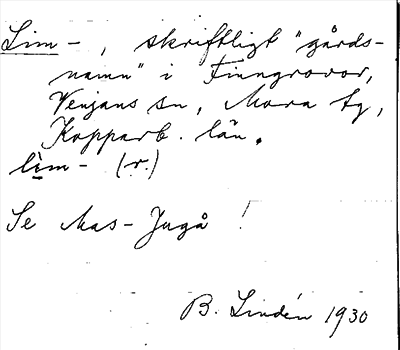 Lim-, skriftligt "gårds-
namn" i Finngruvor,
Venjans sn, Mora tg,
Kopparb. län.
lim- (r.)
Se Mas-Jugå !
B. Lindén 1930